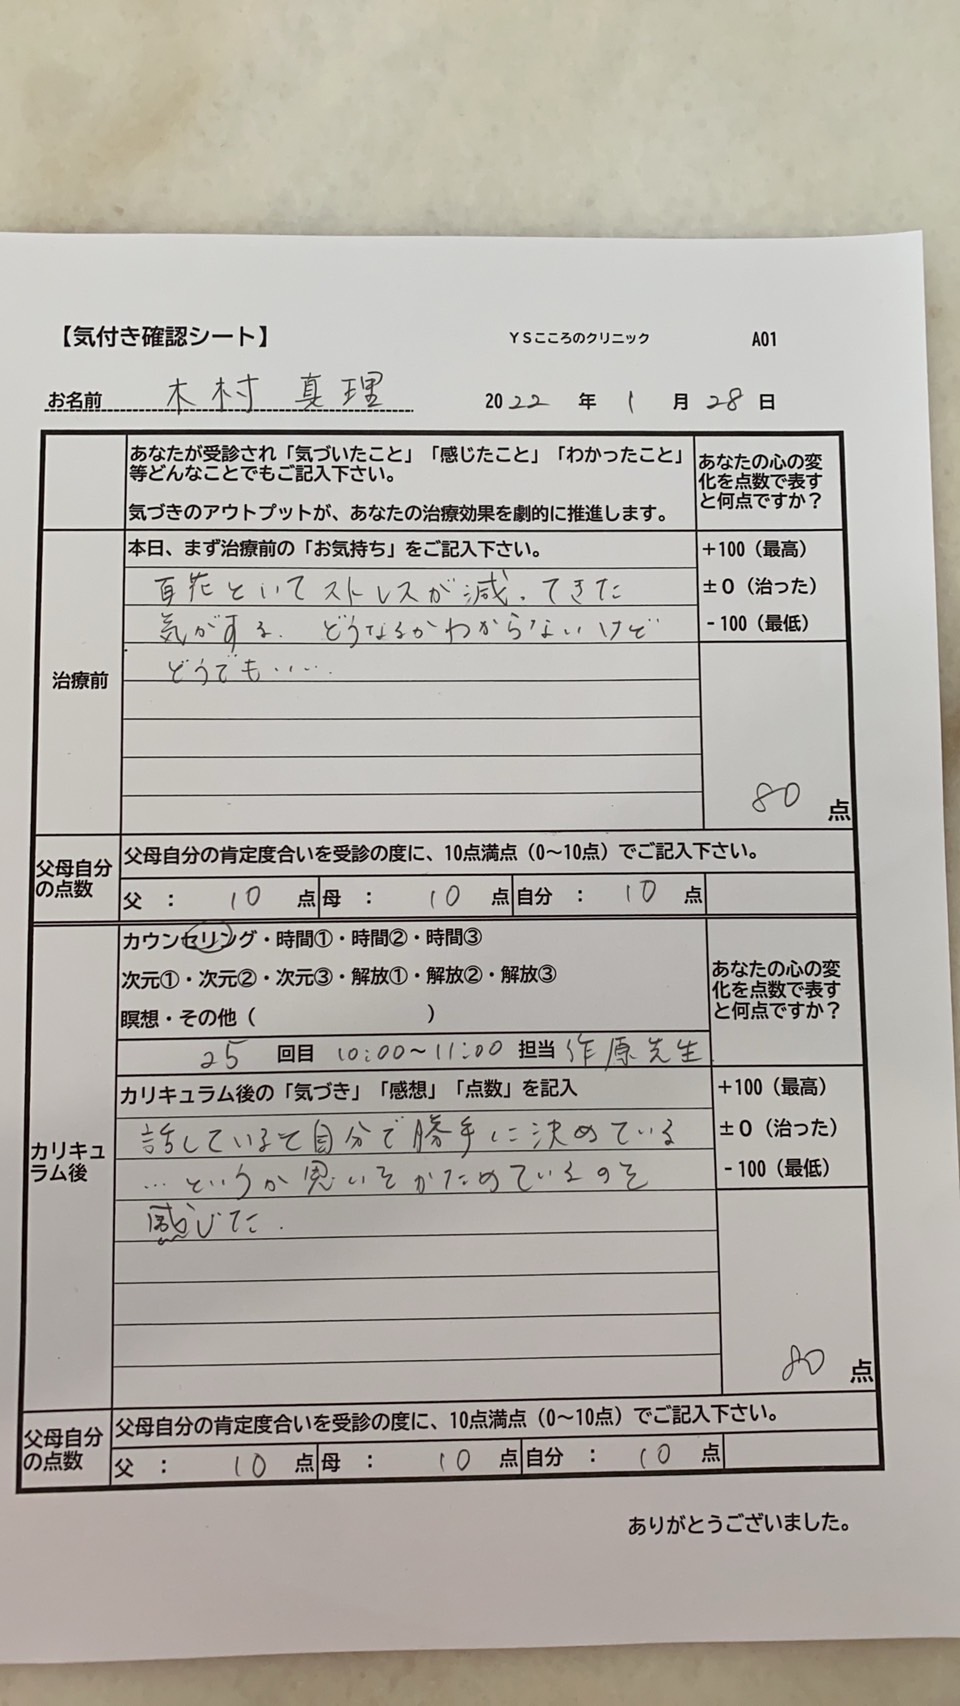 【気付き確認シート】 YSこころのクリニック A01
お名前 木村 真理 2022年 1月 28日
あなたが受診され「気づいたこと」「感じたこと」「わかったこと」
等どんなことでもご記入下さい。
気づきのアウトプットが、あなたの治療効果を劇的に推進します。
あなたの心の変
化を点数で表す
と何点ですか？
治療前
本日、まず治療前の「お気持ち」をご記入下さい。
百花といてストレスが減ってきた
気がする. どうなるかわからないけど
どうでも‥‥.
+100（最高）
±0（治った）
-100（最低）
80 点
父母自分
の点数
父母自分の肯定度合いを受診の度に、10点満点（0〜10点）でご記入下さい。
父 ： 10 点 母 ： 10 点 自分 ： 10 点
カリキュ
ラム後
カウンセリング・時間①・時間②・時間③
次元①・次元②・次元③・解放①・解放②・解放③
瞑想・その他（ ）
25 回目 10:00〜11:00 担当 作原先生
あなたの心の変
化を点数で表す
と何点ですか？
カリキュラム後の「気づき」「感想」「点数」を記入
話していると自分で勝手に決めている
…というか思いをかためているのを
感じた.
+100（最高）
±0（治った）
-100（最低）
80 点
父母自分
の点数
父母自分の肯定度合いを受診の度に、10点満点（0〜10点）でご記入下さい。
父 ： 10 点 母 ： 10 点 自分 ： 10 点
ありがとうございました。